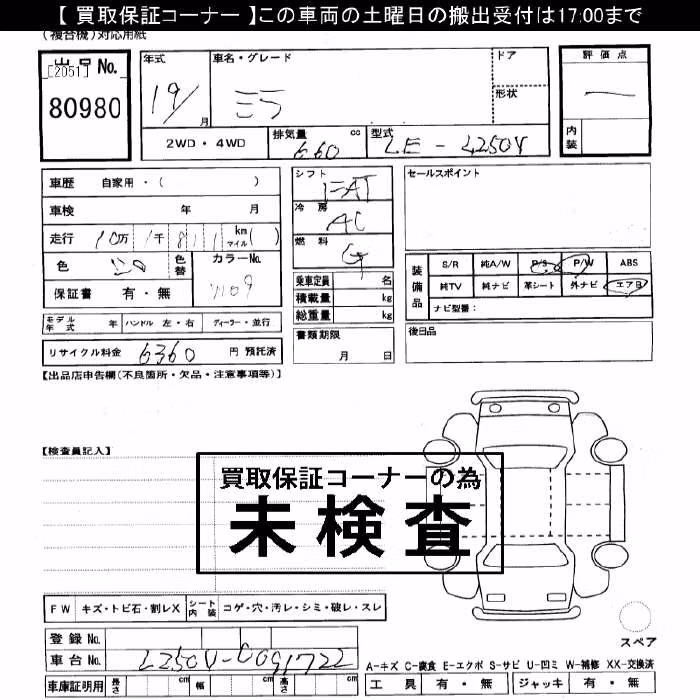 【 買取保証コーナー 】この車両の土曜日の搬出受付は17:00まで
(複合機)対応用紙
[2051] No.
80980
年式 19/ 月
車名・グレード ミラ
ドア
形状
評価点
内装
2WD・4WD
排気量 660 cc
型式 LE - L250V
車歴 自家用・( )
車検 年 月
走行 10万 1千 8 1 1 km マイル( )
色
色替
カラーNo.
保証書 有・無
シフト
冷房 AC
燃料 G
乗車定員 名
積載量 kg
総重量 kg
セールスポイント
装備品
S/R 純A/W P/S P/W ABS
純TV 純ナビ 革シート 外ナビ エアB
ナビ型番:
モデル年式 年 ハンドル 左・右 ディーラー・並行
書類期限 月 日
後日品
リサイクル料金 6360 円 預託済
【出品店申告欄(不良箇所・欠品・注意事項等)】
【検査員記入】
買取保証コーナーの為
未検査
FW キズ・トビ石・割レX シート内装 コゲ・穴・汚レ・シミ・破レ・スレ
スペア
登録No.
車台No. L250V-0091722
A-キズ C-腐食 E-エクボ S-サビ U-凹ミ W-補修 XX-交換済
車庫証明用 長さ cm 幅 cm 高さ cm
工具 有・無 ジャッキ 有・無